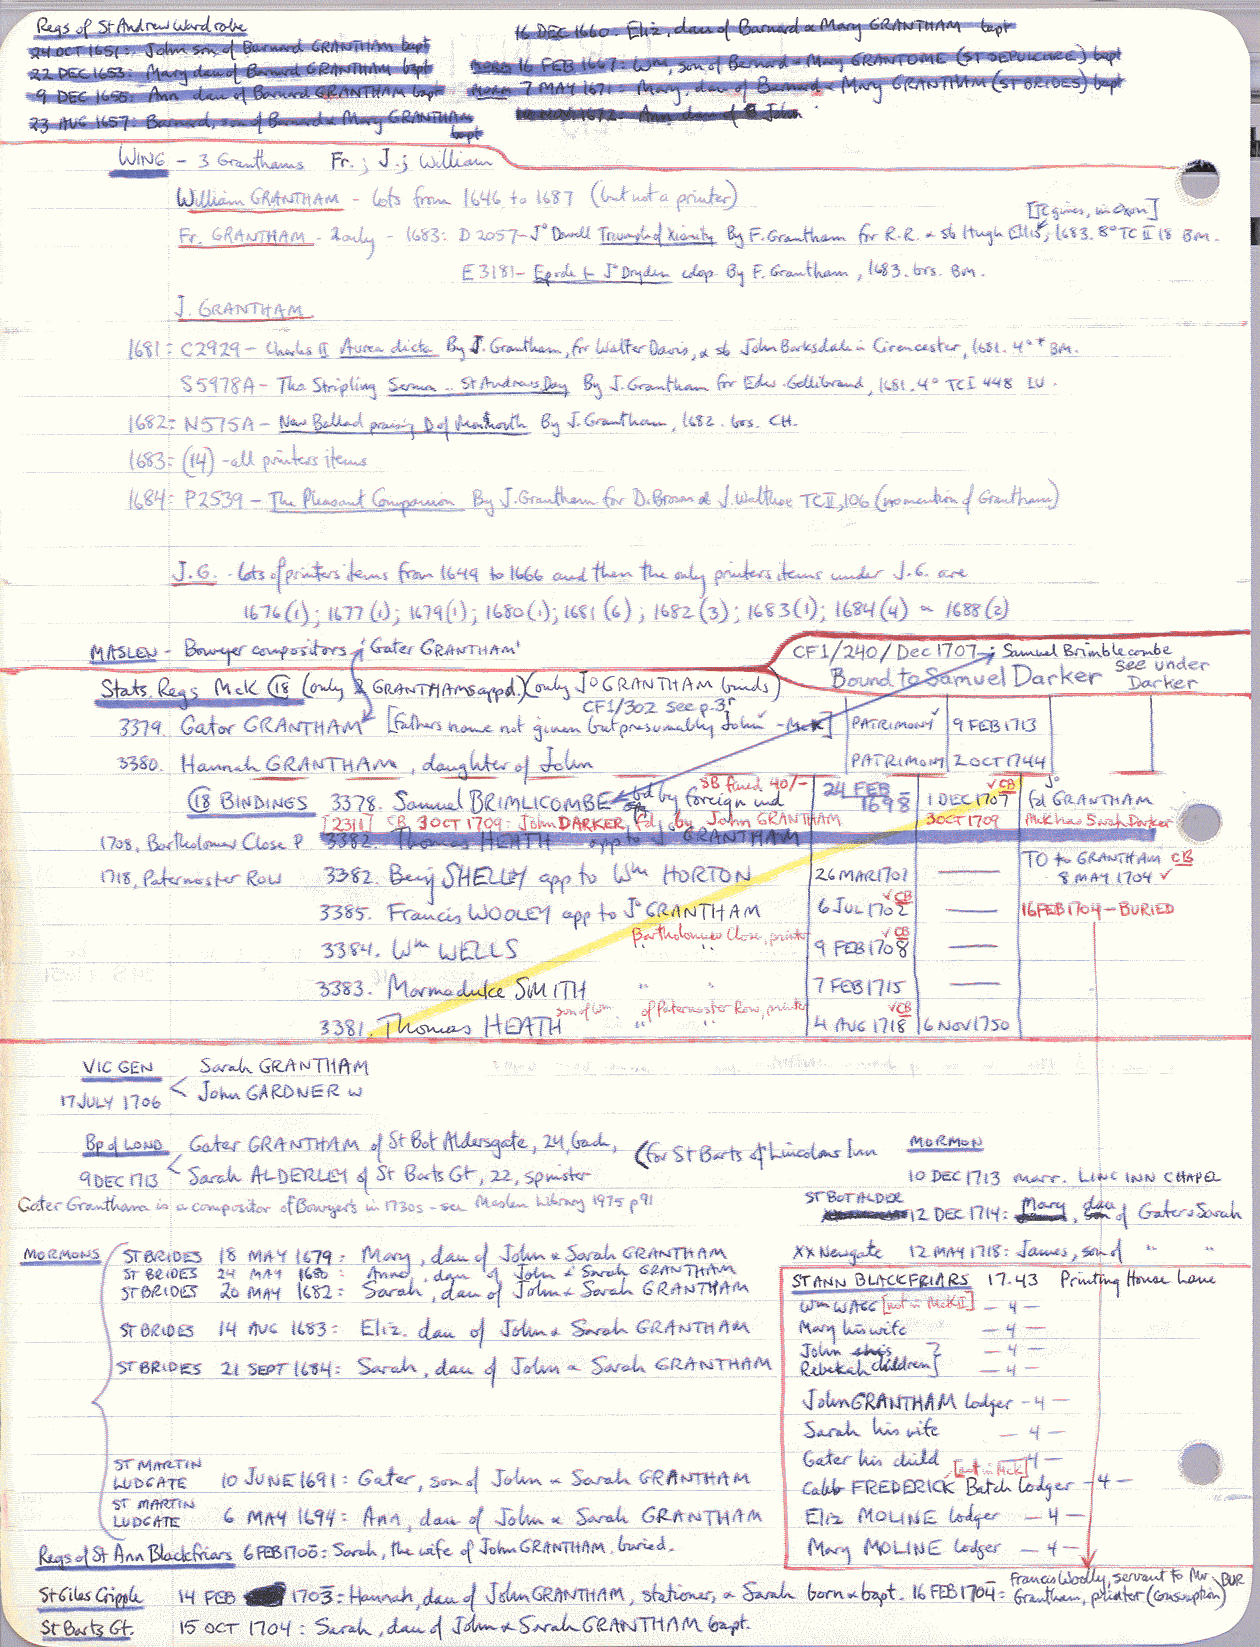 Regs of St Andrew Wardrobe
24 OCT 1651: John son of Barnard GRANTHAM bapt
22 DEC 1653: Mary dau of Barnard GRANTHAM bapt
9 DEC 1655: Ann dau of Barnard GRANTHAM bapt
23 AUG 1657: Barnard, son of Barnard & Mary GRANTHAM bapt
16 DEC 1660: Eliz, dau of Barnard & Mary GRANTHAM bapt
16 FEB 1667: Wm, son of Bernard & Mary GRANTOME (ST SEPULCHRE) bapt
7 MAY 1671: Mary, dau of Bernard & Mary GRANTHAM (ST BRIDES) bapt
1672: Ann dau of John
WING - 3 Granthams Fr.; J.; William
William GRANTHAM - lots from 1646 to 1687 (but not a printer)
[TC gives, in Oxon]
Fr. GRANTHAM - 2 only - 1683: D2057 - Jo Dowell Triumph of Xianity By F. Grantham for R.R. & sb Hugh Ellis, 1683. 8o TC II 18 BM.
E3181 - Epode to Jo Dryden By F. Grantham, 1683. brs. BM.
J. GRANTHAM
1681: C2929 - Charles II Aurea dicta By J. Grantham, for Walter Davis, & sb John Barksdale in Cirencester, 1681. 4o* BM.
S5978A - Tho. Stripling Sermon .. St Andrews Day By J. Grantham for Edw. Gellibrand, 1681. 4o TC I 448 IU.
1682: N575A - New Ballad praising D of Monmouth By J. Grantham, 1682. brs. CH.
1683: (14) - all printers items
1684: P2539 - The Pleasant Companion By J. Grantham for D. Brown & J. Walthoe TC II, 106 (no mention of Grantham)
J.G. - lots of printers items from 1649 to 1666 and then the only printers items under J.G. are
1676 (1); 1677 (1); 1679 (1); 1680 (1); 1681 (6); 1682 (3); 1683 (1); 1684 (4) & 1688 (2)
MASLEN - Bowyer compositors 'Gater GRANTHAM'
CF1/240/Dec 1707 : Samuel Brimblecombe
Bound to Samuel Darker see under Darker
Stats. Regs McK (18) (only 2 GRANTHAMS appd.) (only Jo GRANTHAM binds)
CF1/302 see p.3r
3379. Gator GRANTHAM [Fathers name not given but presumably John - McK] PATRIMONY 9 FEB 1713
3380. Hannah GRANTHAM, daughter of John PATRIMONY 2 OCT 1744
(18) BINDINGS 3378. Samuel BRIMLICOMBE bd by foreign ind SB fined 40/- 24 FEB 1698 1 DEC 1707 CB Jo fd GRANTHAM
[2311] CB 3 OCT 1709: John DARKER, fd by John GRANTHAM 3 OCT 1709 McK has Sarah Darker
1708, Bartholomew Close P 3382. Thomas HEATH app to J GRANTHAM
1718, Paternoster Row 3382. Benj SHELLEY app to Wm HORTON 26 MAR 1701 —— TO to GRANTHAM CB 8 MAY 1704
3385. Francis WOOLEY app to Jo GRANTHAM 6 JUL 1702 CB —— 16 FEB 1704 - BURIED
3384. Wm WELLS " " Bartholomew Close, printer 9 FEB 1708 CB ——
3383. Marmaduke SMITH " " 7 FEB 1715 ——
3381. Thomas HEATH son of Wm " of Paternoster Row, printer " 4 AUG 1718 CB 6 NOV 1750
VIC GEN Sarah GRANTHAM
17 JULY 1706 John GARDNER W
Bp of LOND Gater GRANTHAM of St Bot Aldersgate, 24, bach,
9 DEC 1713 Sarah ALDERLEY of St Barts Gt, 22, spinster
(for St Barts or Lincolns Inn
MORMON
10 DEC 1713 marr. LINC INN CHAPEL
Gater Grantham is a compositor of Bowyer's in 1730s - see Maslen Library 1975 p91
ST BOT ALDER 12 DEC 1714: Mary, dau of Gater & Sarah
XX Newgate 12 MAY 1718: James, son of " "
MORMONS ST BRIDES 18 MAY 1679: Mary, dau of John & Sarah GRANTHAM
ST BRIDES 24 MAY 1680: Anne, dau of John & Sarah GRANTHAM
ST BRIDES 20 MAY 1682: Sarah, dau of John & Sarah GRANTHAM
ST BRIDES 14 AUG 1683: Eliz. dau of John & Sarah GRANTHAM
ST BRIDES 21 SEPT 1684: Sarah, dau of John & Sarah GRANTHAM
ST MARTIN LUDGATE 10 JUNE 1691: Gater, son of John & Sarah GRANTHAM
ST MARTIN LUDGATE 6 MAY 1694: Ann, dau of John & Sarah GRANTHAM
ST ANN BLACKFRIARS 17.43 Printing House Lane
Wm WAGG [not in McK II] - 4 -
Mary his wife - 4 -
John - 4 -
Rebekah children - 4 -
John GRANTHAM lodger - 4 -
Sarah his wife - 4 -
Gater his child - 4 -
Caleb FREDERICK [not in McK] Batch lodger - 4 -
Eliz MOLINE lodger - 4 -
Mary MOLINE lodger - 4 -
Regs of St Ann Blackfriars 6 FEB 1700: Sarah, the wife of John GRANTHAM buried.
St Giles Cripple 14 FEB 1703: Hannah, dau of John GRANTHAM, stationer, & Sarah born & bapt. 16 FEB 1704: Francis Woolly, servant to Mr Grantham, printer (consumption) BUR
St Barts Gt. 15 OCT 1704: Sarah, dau of John & Sarah GRANTHAM bapt.